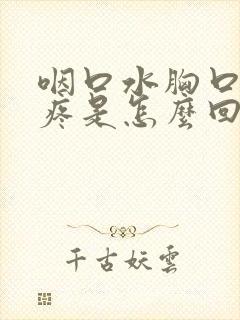 咽口水胸口
疼是怎麼回
千古妖雲